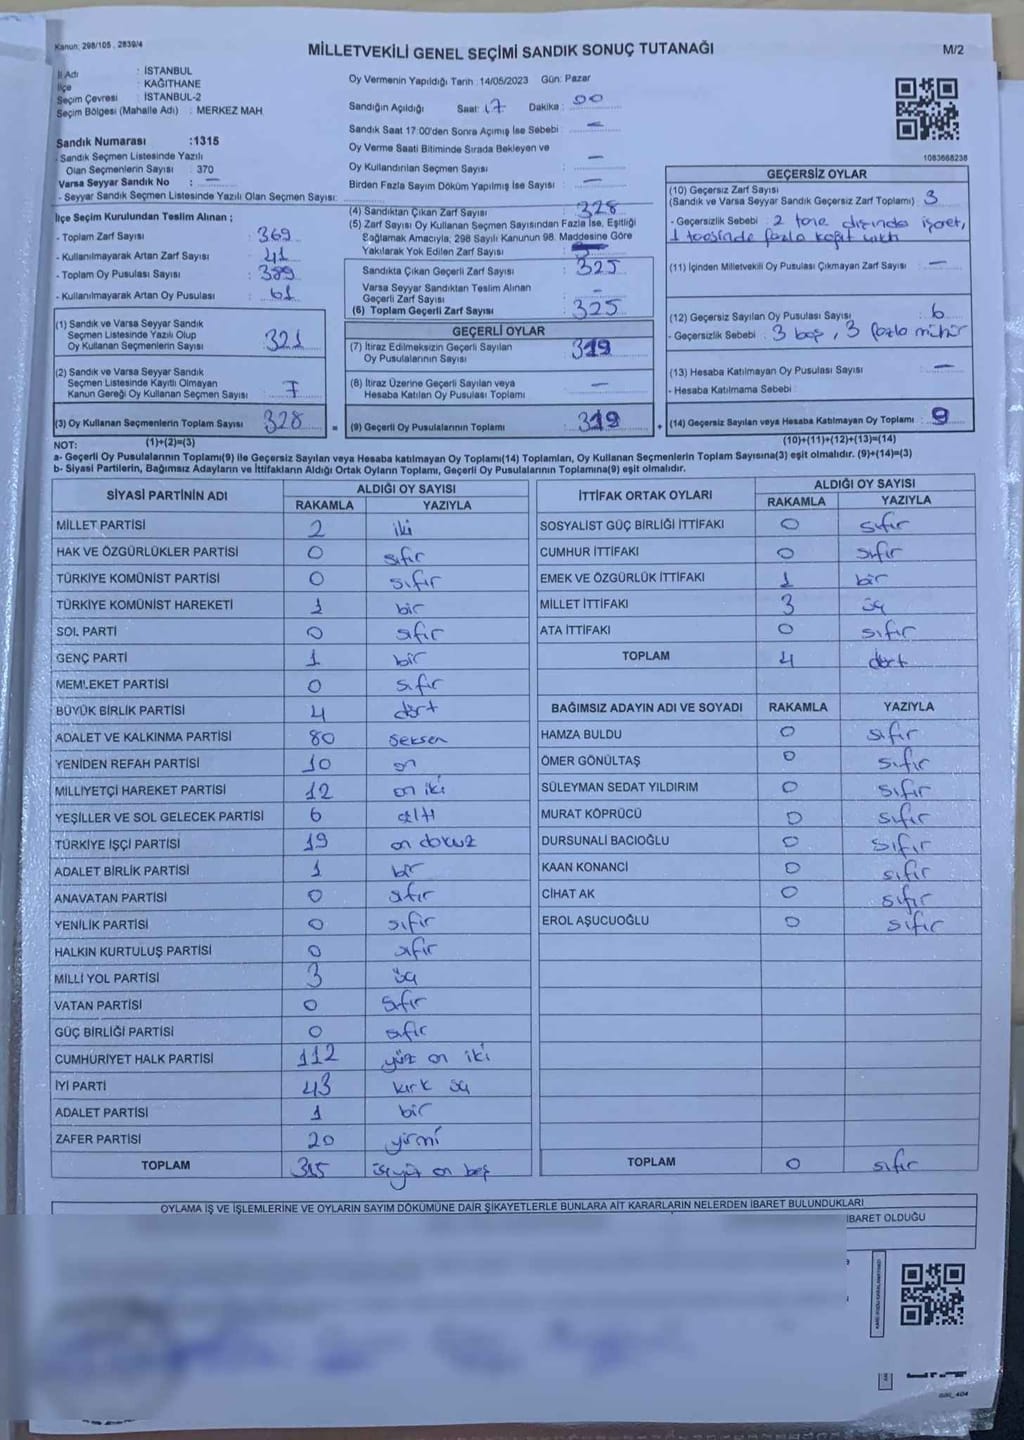 Kanun: 298/105 , 2839/4
MİLLETVEKİLİ GENEL SEÇİMİ SANDIK SONUÇ TUTANAĞI
M/2
İl Adı : İSTANBUL
İlçe : KAĞITHANE
Seçim Çevresi : İSTANBUL-2
Seçim Bölgesi (Mahalle Adı) : MERKEZ MAH
Oy Vermenin Yapıldığı Tarih :14/05/2023 Gün: Pazar
Sandığın Açıldığı Saat: 17 Dakika : 00
Sandık Saat 17:00'den Sonra Açımış İse Sebebi : —
Oy Verme Saati Bitiminde Sırada Bekleyen ve
Oy Kullandırılan Seçmen Sayısı : —
Birden Fazla Sayım Döküm Yapılmış İse Sayısı : —
1083668238
Sandık Numarası :1315
- Sandık Seçmen Listesinde Yazılı
Olan Seçmenlerin Sayısı : 370
Varsa Seyyar Sandık No : —
- Seyyar Sandık Seçmen Listesinde Yazılı Olan Seçmen Sayısı:
İlçe Seçim Kurulundan Teslim Alınan ;
- Toplam Zarf Sayısı : 369
- Kullanılmayarak Artan Zarf Sayısı : 41
- Toplam Oy Pusulası Sayısı : 389
- Kullanılmayarak Artan Oy Pusulası : 61
(1) Sandık ve Varsa Seyyar Sandık
Seçmen Listesinde Yazılı Olup
Oy Kullanan Seçmenlerin Sayısı : 321
(2) Sandık ve Varsa Seyyar Sandık
Seçmen Listesinde Kayıtlı Olmayan
Kanun Gereği Oy Kullanan Seçmen Sayısı : 7
(3) Oy Kullanan Seçmenlerin Toplam Sayısı : 328
(4) Sandıktan Çıkan Zarf Sayısı : 328
(5) Zarf Sayısı Oy Kullanan Seçmen Sayısından Fazla İse, Eşitliği
Sağlamak Amacıyla, 298 Sayılı Kanunun 98. Maddesine Göre
Yakılarak Yok Edilen Zarf Sayısı :
Sandıkta Çıkan Geçerli Zarf Sayısı : 325
Varsa Seyyar Sandıktan Teslim Alınan
Geçerli Zarf Sayısı : —
(6) Toplam Geçerli Zarf Sayısı : 325
GEÇERLİ OYLAR
(7) İtiraz Edilmeksizin Geçerli Sayılan
Oy Pusulalarının Sayısı : 319
(8) İtiraz Üzerine Geçerli Sayılan veya
Hesaba Katılan Oy Pusulası Toplamı : —
= (9) Geçerli Oy Pusulalarının Toplamı : 319
GEÇERSİZ OYLAR
(10) Geçersiz Zarf Sayısı
(Sandık ve Varsa Seyyar Sandık Geçersiz Zarf Toplamı) : 3
- Geçersizlik Sebebi : 2 tane dışında işaret,
1 tanesinde fazla kağıt çıktı
(11) İçinden Milletvekili Oy Pusulası Çıkmayan Zarf Sayısı : —
(12) Geçersiz Sayılan Oy Pusulası Sayısı : 6
- Geçersizlik Sebebi : 3 boş, 3 fazla mühür
(13) Hesaba Katılmayan Oy Pusulası Sayısı : —
- Hesaba Katılmama Sebebi :
+ (14) Geçersiz Sayılan veya Hesaba Katılmayan Oy Toplamı : 9
NOT: (1)+(2)=(3)
(10)+(11)+(12)+(13)=(14)
a- Geçerli Oy Pusulalarının Toplamı(9) ile Geçersiz Sayılan veya Hesaba katılmayan Oy Toplamı(14) Toplamları, Oy Kullanan Seçmenlerin Toplam Sayısına(3) eşit olmalıdır. (9)+(14)=(3)
b- Siyasi Partilerin, Bağımsız Adayların ve İttifakların Aldığı Ortak Oyların Toplamı, Geçerli Oy Pusulalarının Toplamına(9) eşit olmalıdır.
SİYASİ PARTİNİN ADI ALDIĞI OY SAYISI
RAKAMLA YAZIYLA
MİLLET PARTİSİ 2 iki
HAK VE ÖZGÜRLÜKLER PARTİSİ 0 sıfır
TÜRKİYE KOMÜNİST PARTİSİ 0 sıfır
TÜRKİYE KOMÜNİST HAREKETİ 1 bir
SOL PARTİ 0 sıfır
GENÇ PARTİ 1 bir
MEMLEKET PARTİSİ 0 sıfır
BÜYÜK BİRLİK PARTİSİ 4 dört
ADALET VE KALKINMA PARTİSİ 80 seksen
YENİDEN REFAH PARTİSİ 10 on
MİLLİYETÇİ HAREKET PARTİSİ 12 on iki
YEŞİLLER VE SOL GELECEK PARTİSİ 6 altı
TÜRKİYE İŞÇİ PARTİSİ 19 on dokuz
ADALET BİRLİK PARTİSİ 1 bir
ANAVATAN PARTİSİ 0 sıfır
YENİLİK PARTİSİ 0 sıfır
HALKIN KURTULUŞ PARTİSİ 0 sıfır
MİLLİ YOL PARTİSİ 3 üç
VATAN PARTİSİ 0 sıfır
GÜÇ BİRLİĞİ PARTİSİ 0 sıfır
CUMHURİYET HALK PARTİSİ 112 yüz on iki
İYİ PARTİ 43 kırk üç
ADALET PARTİSİ 1 bir
ZAFER PARTİSİ 20 yirmi
TOPLAM 315 üçyüz on beş
İTTİFAK ORTAK OYLARI ALDIĞI OY SAYISI
RAKAMLA YAZIYLA
SOSYALİST GÜÇ BİRLİĞİ İTTİFAKI 0 sıfır
CUMHUR İTTİFAKI 0 sıfır
EMEK VE ÖZGÜRLÜK İTTİFAKI 1 bir
MİLLET İTTİFAKI 3 üç
ATA İTTİFAKI 0 sıfır
TOPLAM 4 dört
BAĞIMSIZ ADAYIN ADI VE SOYADI RAKAMLA YAZIYLA
HAMZA BULDU 0 sıfır
ÖMER GÖNÜLTAŞ 0 sıfır
SÜLEYMAN SEDAT YILDIRIM 0 sıfır
MURAT KÖPRÜCÜ 0 sıfır
DURSUNALİ BACIOĞLU 0 sıfır
KAAN KONANCİ 0 sıfır
CİHAT AK 0 sıfır
EROL AŞUCUOĞLU 0 sıfır
TOPLAM 0 sıfır
OYLAMA İŞ VE İŞLEMLERİNE VE OYLARIN SAYIM DÖKÜMÜNE DAİR ŞİKAYETLERLE BUNLARA AİT KARARLARIN NELERDEN İBARET BULUNDUKLARI
İBARET OLDUĞU